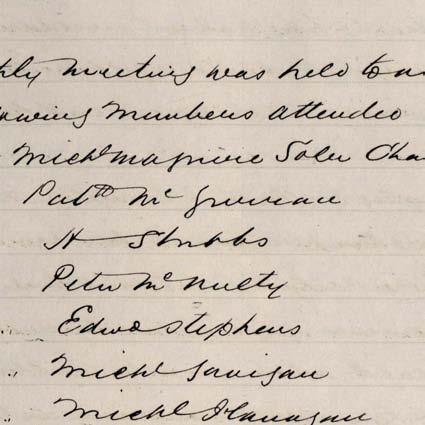 meeting was held
members attended
Michl Maguire Solr
Patk Mc
H Stubbs
Peter McNulty
Edwd Stephens
" Michl Gavigan
" Michl Flanagan